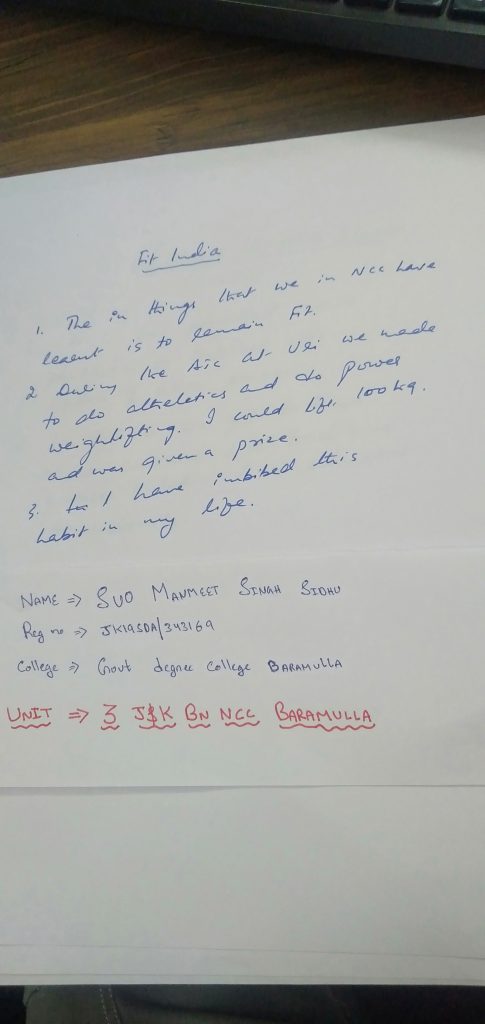 Fit India
1. The in things that we in NCC have
learnt is to remain Fit.
2 During the Aic at Uri we made
to do athletics and do power
weighlifting. I could lift 100 kg.
and was given a prize.
3. I have imbibed this
habit in my life.
NAME => SUO MANMEET SINGH SIDHU
Reg no => JK19SDA/343169
College => Govt degree College BARAMULLA
UNIT => 3 J&K BN NCC BARAMULLA